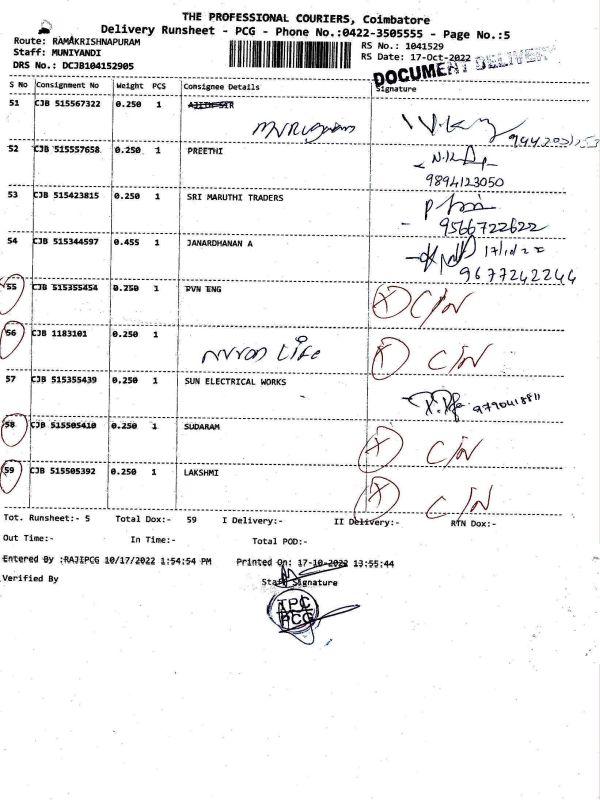 THE PROFESSIONAL COURIERS, Coimbatore
Delivery Runsheet - PCG - Phone No.:0422-3505555 - Page No.:5
Route: RAMAKRISHNAPURAM
RS No.: 1041529
Staff: MUNIYANDI
RS Date: 17-Oct-2022
DRS No.: DCJB104152905
DOCUMENT DELIVERY
S No Consignment No Weight PCS Consignee Details Signature
51 CJB 515567322 0.250 1 AJITH SIR
52 CJB 515557658 0.250 1 PREETHI
9894123050
53 CJB 515423815 0.250 1 SRI MARUTHI TRADERS
9566722622
54 CJB 515344597 0.455 1 JANARDHANAN A
17/10/22
9677242244
55 CJB 515355454 0.250 1 PVN ENG X C/N
56 CJB 1183101 0.250 1 Life X C/N
57 CJB 515355439 0.250 1 SUN ELECTRICAL WORKS
58 CJB 515505410 0.250 1 SUDARAM X C/N
59 CJB 515505392 0.250 1 LAKSHMI X C/N
Tot. Runsheet:- 5 Total Dox:- 59 I Delivery:- II Delivery:- RTN Dox:-
Out Time:- In Time:- Total POD:-
Entered By :RAJIPCG 10/17/2022 1:54:54 PM Printed On: 17-10-2022 13:55:44
Verified By Staff Signature
TPC
PCG